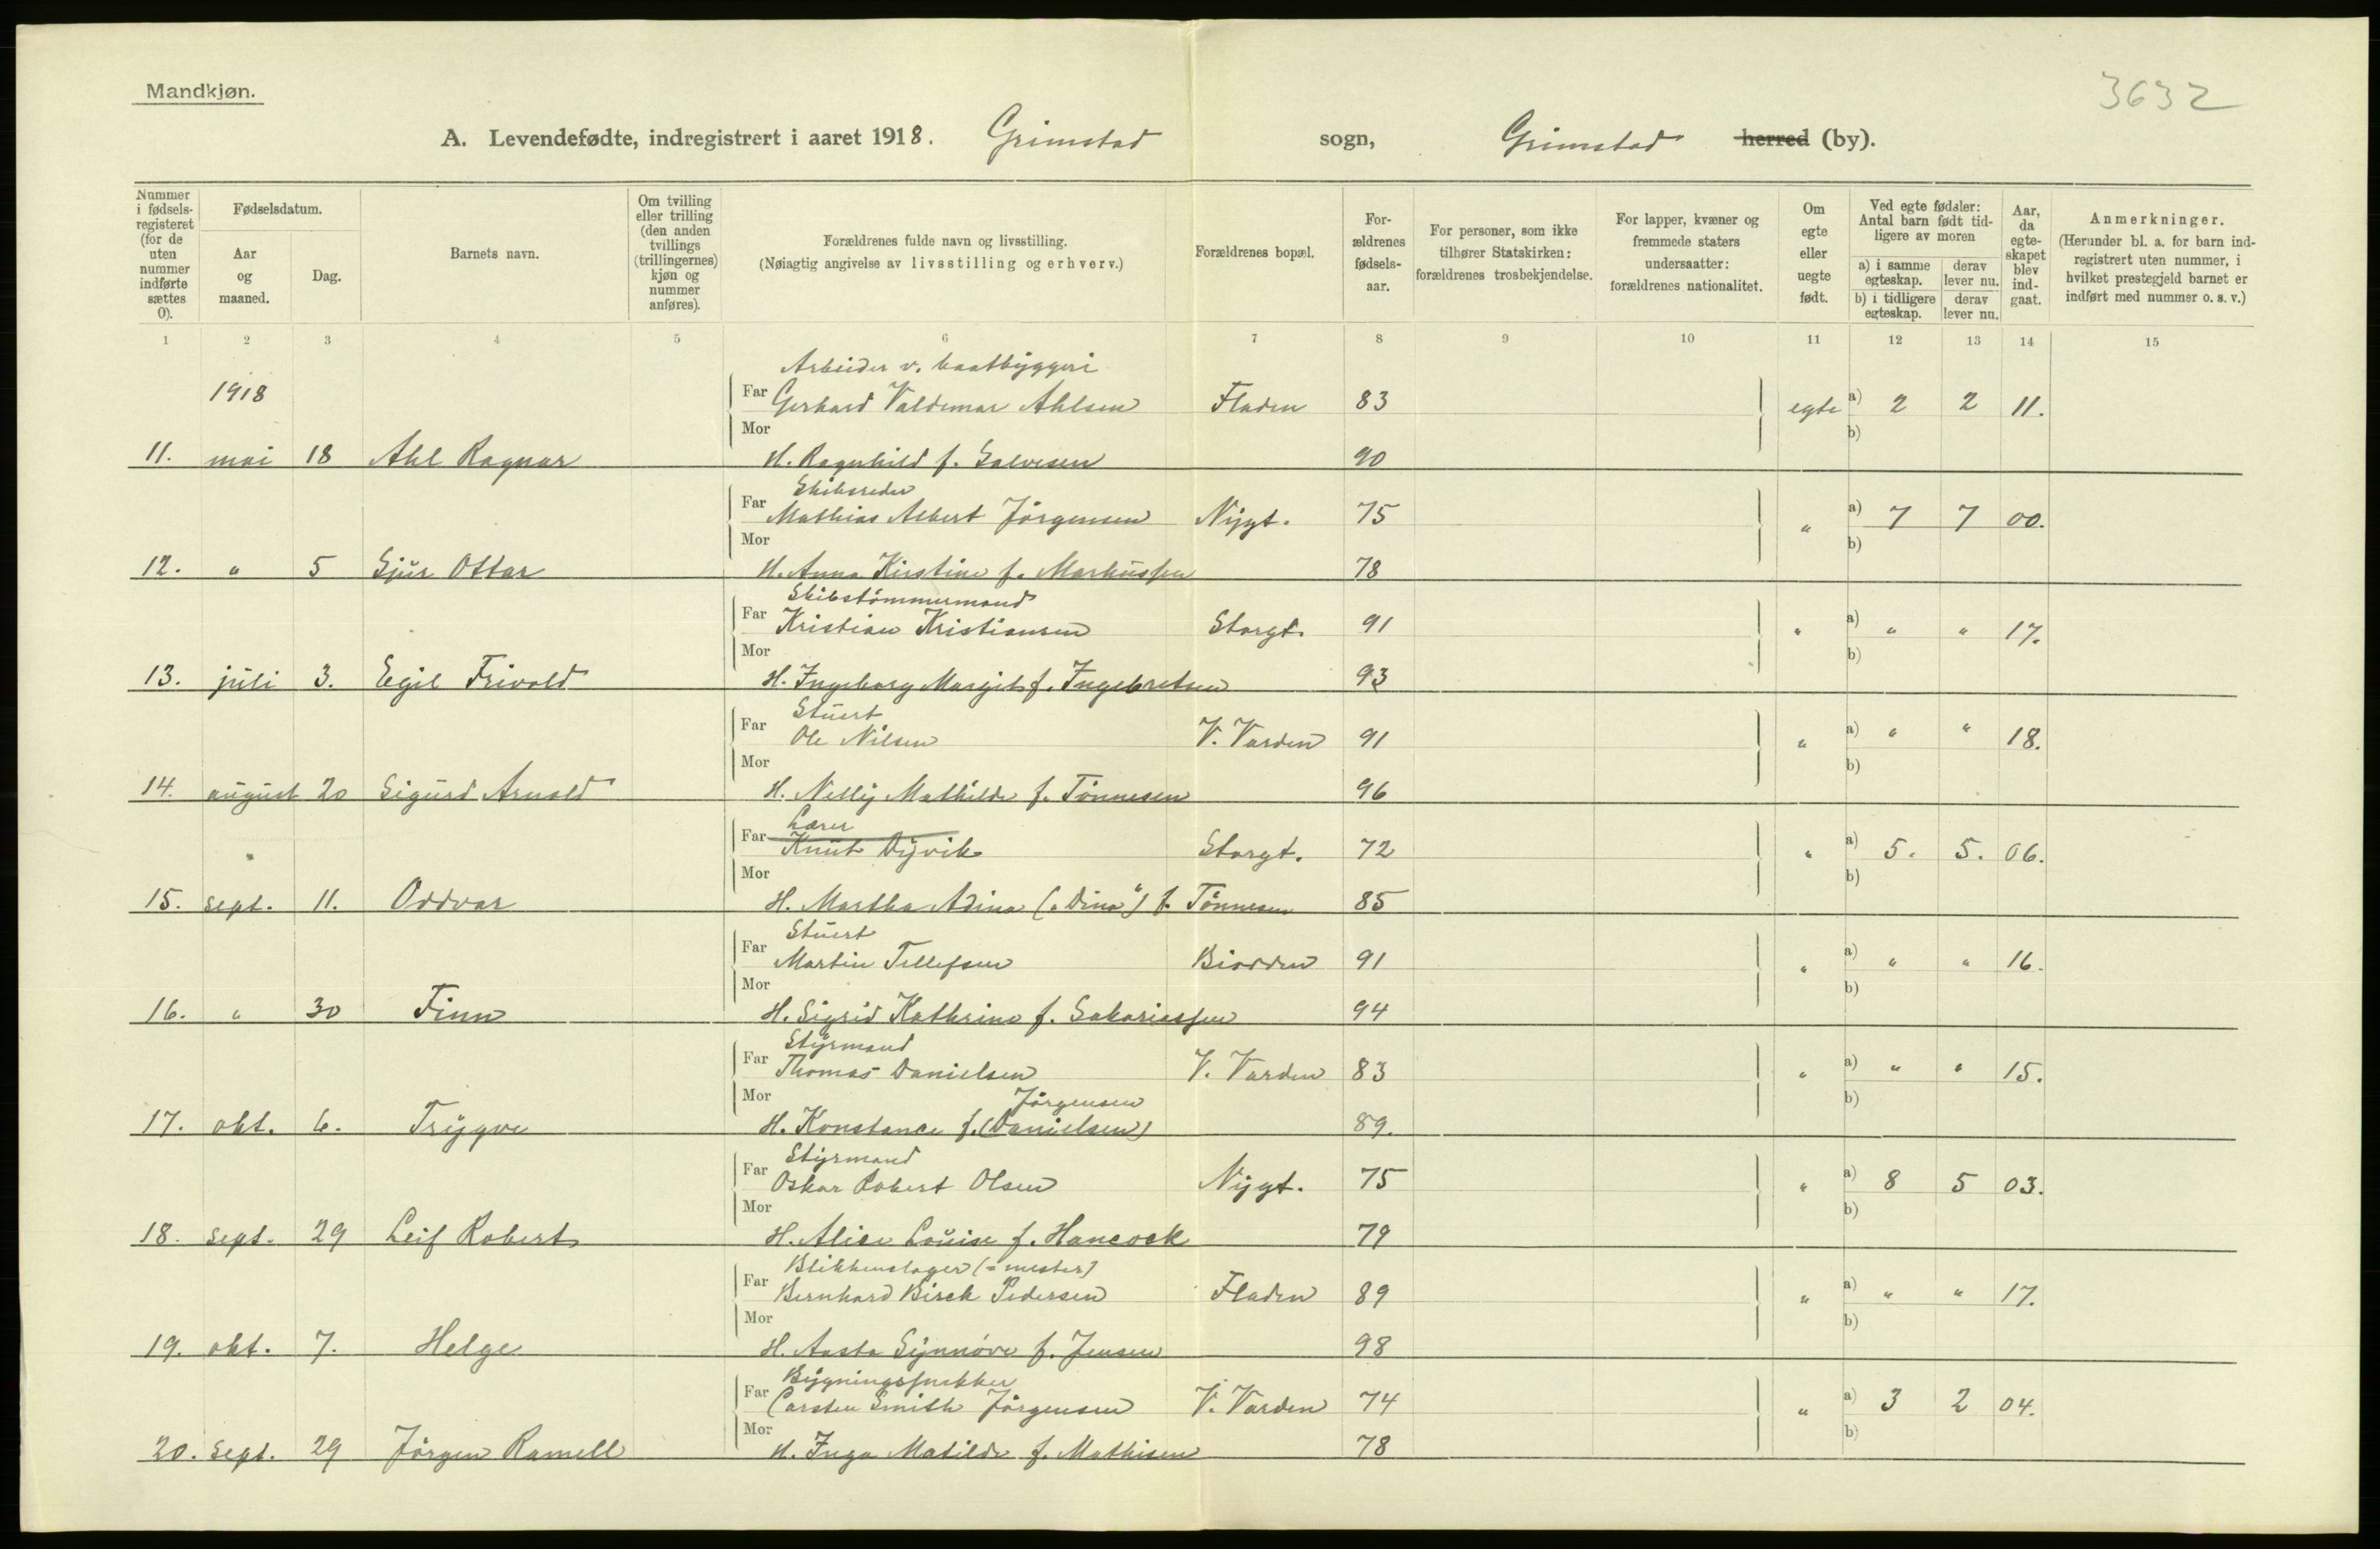 Mandkjøn.
3632
A. Levendefødte, indregistrert i aaret 1918. Grimstad sogn, Grimstad herred (by).
Nummer i fødsels-registeret (for de uten nummer indførte sættes 0).
Fødselsdatum.
Aar og maaned.
Dag.
Barnets navn.
Om tvilling eller trilling (den anden tvillings (trillingernes) kjøn og nummer anføres).
Forældrenes fulde navn og livsstilling.
(Nøiagtig angivelse av livsstilling og erhverv.)
Forældrenes bopæl.
For-ældrenes fødsels-aar.
For personer, som ikke tilhører Statskirken: forældrenes trosbekjendelse.
For lapper, kvæner og fremmede staters undersaatter: forældrenes nationalitet.
Om egte eller uegte født.
Ved egte fødsler: Antal barn født tid-ligere av moren
a) i samme egteskap.
derav lever nu.
b) i tidligere egteskap.
derav lever nu.
Aar, da egte-skapet blev ind-gaat.
Anmerkninger.
(Herunder bl. a. for barn ind-registrert uten nummer, i hvilket prestegjeld barnet er indført med nummer o. s. v.)
1 2 3 4 5 6 7 8 9 10 11 12 13 14 15
Arbeider v. baatbyggeri
1918 Far Gerhard Valdemar Ahlsen Fladen 83 egte a) 2 2 11.
Mor b)
11. mai 18 Ahl Ragnar H. Ragnhild f. Salvesen 90
Skibsreder
Far Mathias Albert Jörgensen Nygt. 75 " a) 7 7 00.
Mor b)
12. " 5 Sjur Ottar H. Anna Kirstine f. Markussen 78
Skibstömmermand
Far Kristian Kristiansen Storgt. 91 " a) " " 17.
Mor b)
13. juli 3. Egil Frivold H. Ingeborg Margit f. Ingebretsen 93
Stuert
Far Ole Nilsen V. Varden 91 " a) " " 18.
Mor b)
14. august 20 Sigurd Arnold H. Nelly Mathilde f. Tönnesen 96
Lærer
Far Knut Dyvik Storgt. 72 " a) 5. 5. 06.
Mor b)
15. sept. 11. Oddvar H. Martha Adina ("Dina") f. Tönnesen 85
Stuert
Far Martin Tellefsen Biodden 91 " a) " " 16.
Mor b)
16. " 30 Finn H. Sigrid Kathrine f. Sakariassen 94
Styrmand
Far Thomas Danielsen V. Varden 83 " a) " " 15.
Mor Jörgensen b)
17. okt. 6. Trygve H. Konstance f. (Danielsen) 89.
Styrmand
Far Oskar Robert Olsen Nygt. 75 " a) 8 5 03.
Mor b)
18. sept. 29 Leif Robert H. Alice Louise f. Hancock 79
Blikkenslager (=mester)
Far Bernhard Birck Pedersen Fladen 89 " a) " " 17.
Mor b)
19. okt. 7. Helge H. Aasta Synnöve f. Jensen 98
Bygningssnekker
Far Carsten Smith Jörgensen V. Varden 74 " a) 3 2 04.
Mor b)
20. sept. 29 Jörgen Ramell H. Inga Matilde f. Mathisen 78